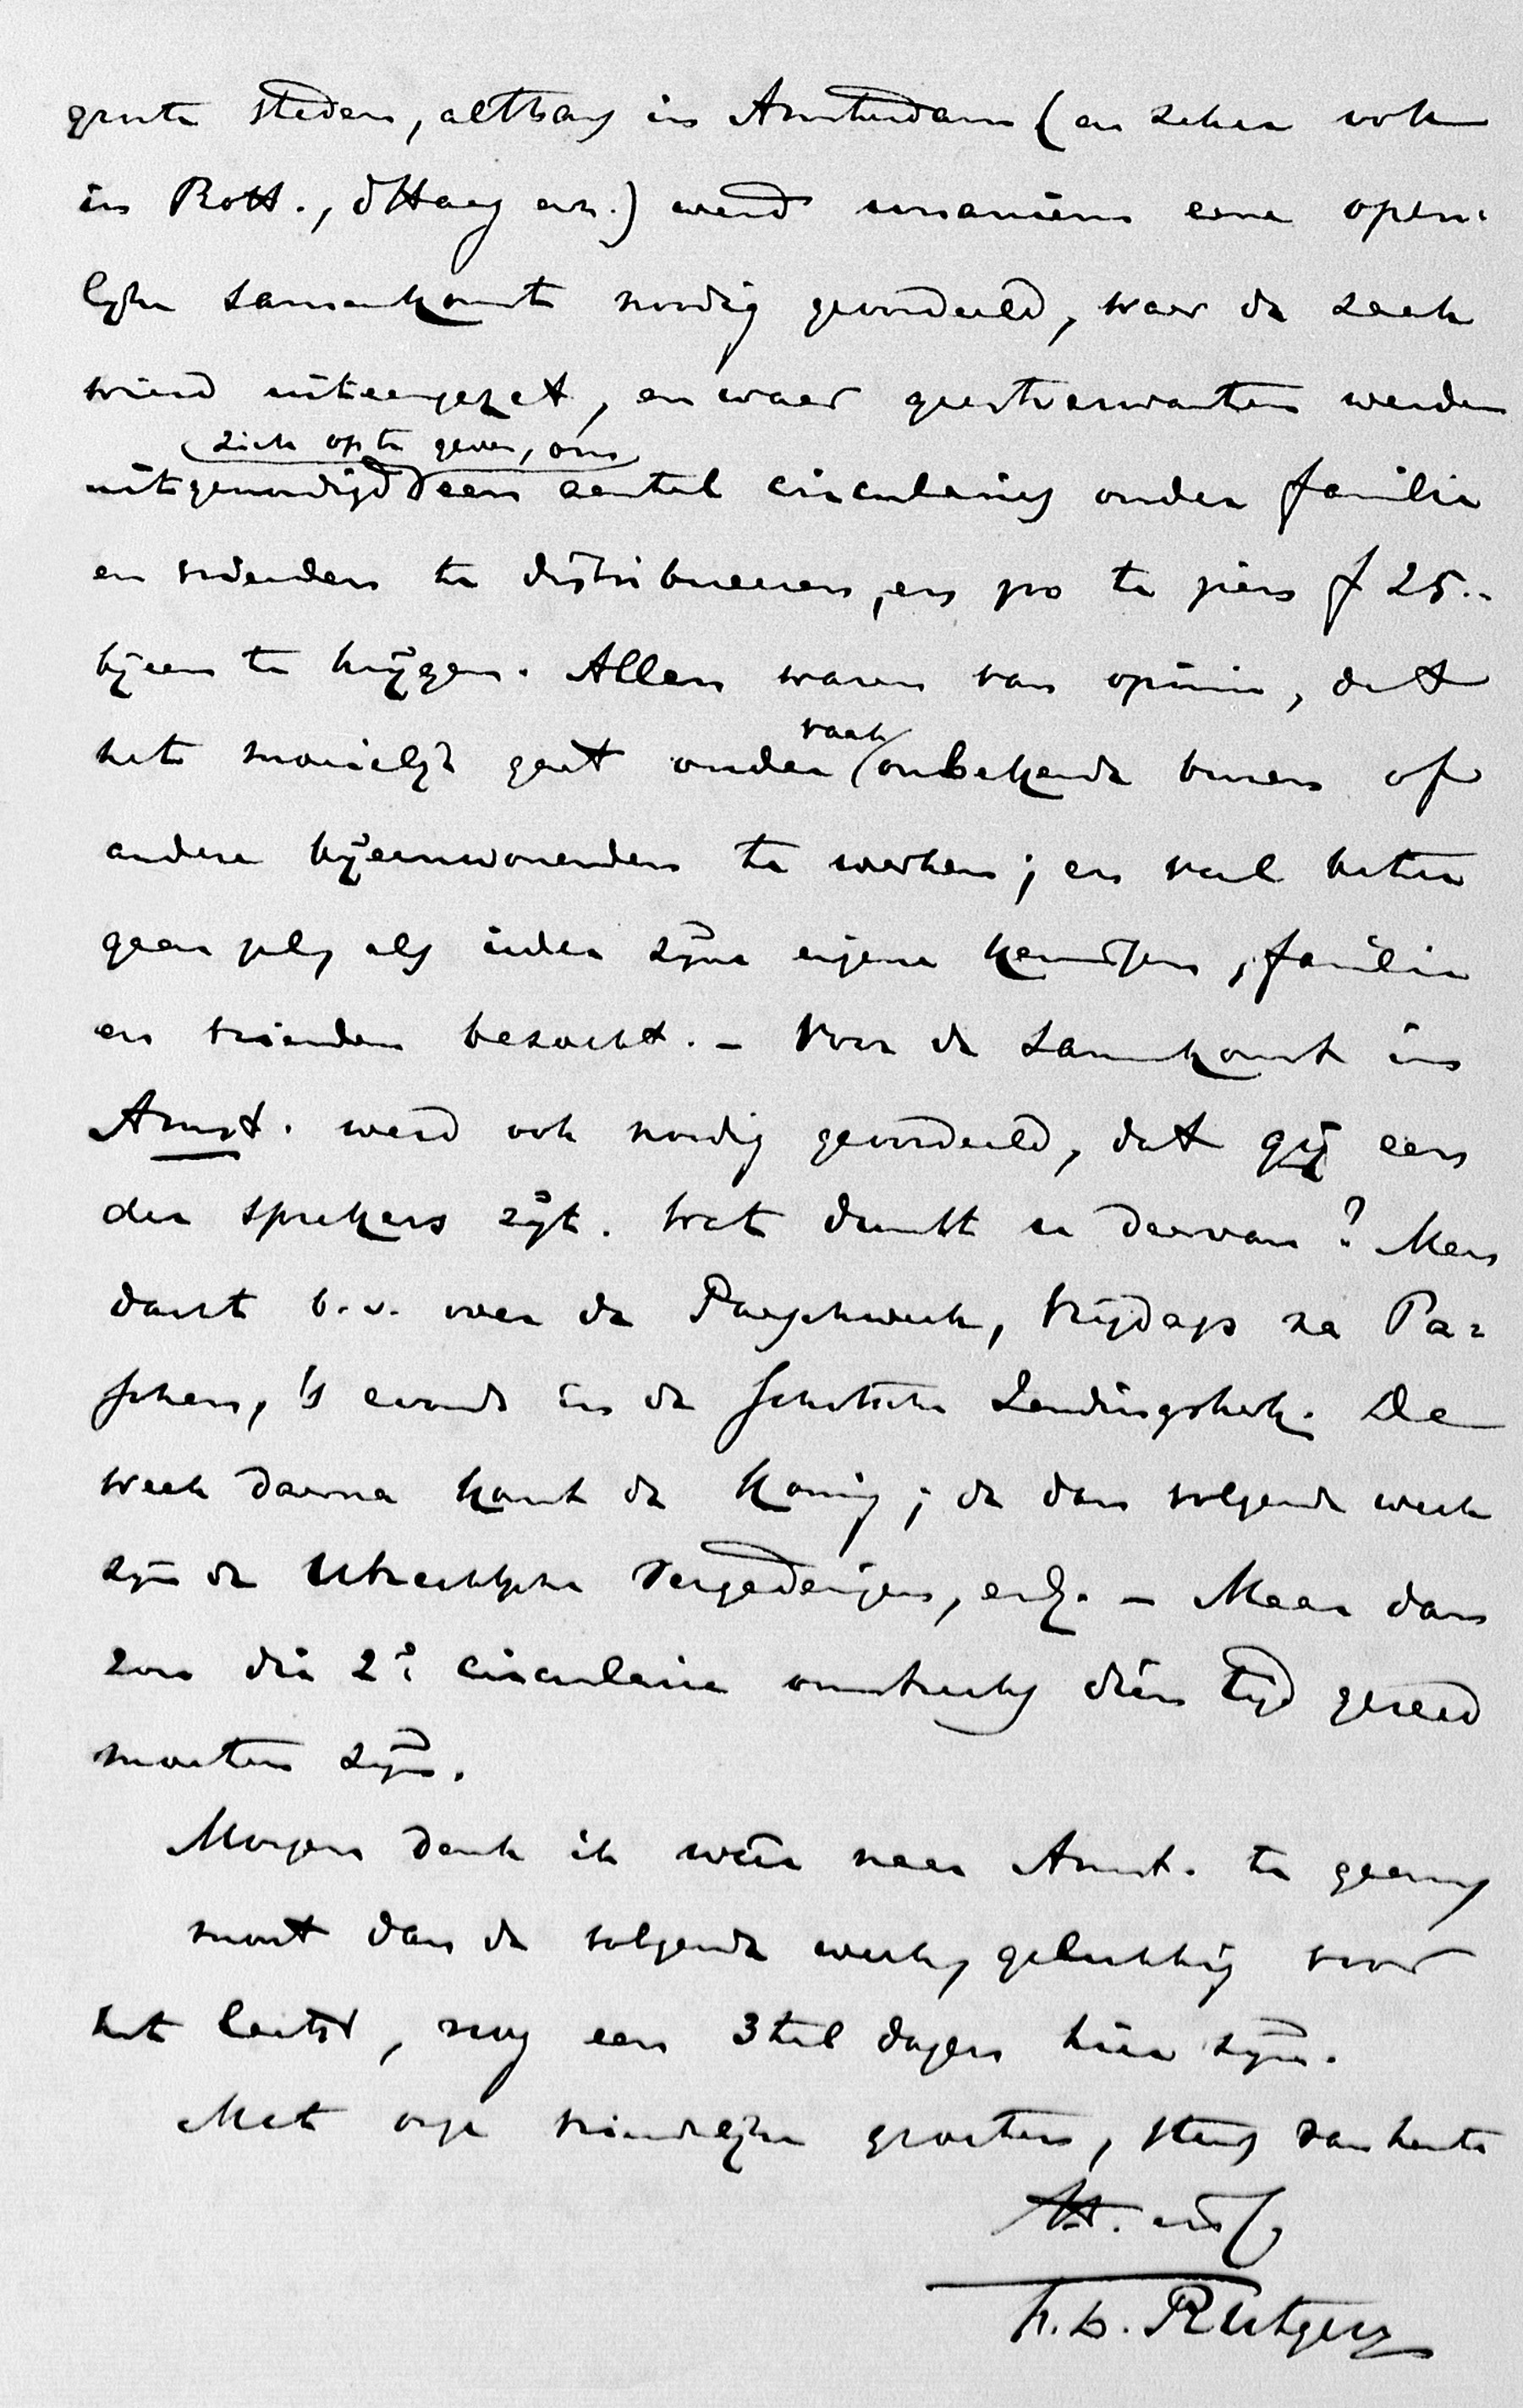 groote steden, althans in Amsterdam (en zeker ook
in Rott., d'Haag enz.) werd unaniem eene open-
lijke samenkomst noodig geoordeeld, waar de zaak
wierd uiteengezet, en waar geestverwanten werden
zich op te geven, om
uitgenoodigd een aantal circulaires onder familie
en vrienden te distribueeren, en zoo te zien f 25.-
bijeen te krijgen. Allen waren van opinie, dat
vaak
het moeielijk gaat onder onbekende buren of
andere bijeenwonenden te werken; en veel beter
geen plus als ieder zijne eigene kennissen, familie
en vrienden bezocht. – Voor de samenkomst in
Amst. werd ook noodig geoordeeld, dat gij een
der sprekers zijt. Wat dunkt u daarvan? Men
dacht b.v. over de Paaschweek, Vrijdags na Pa-
schen, 's avonds in de Schotsche Zendingskerk. De
week daarna komt de Koning; de dan volgende week
zijn de Utrechtsche vergaderingen, enz. – Maar dan
zou die 2e circulaire omstreeks dien tijd gereed
moeten zijn.
Morgen denk ik weêr naar Amst. te gaan,
moet dan de volgende week, gelukkig voor
het laatst, nog een 3tal dagen hier zijn.
Met onze vriendelijke groeten, steeds van harte
tt. in C,
F. L. Rutgers